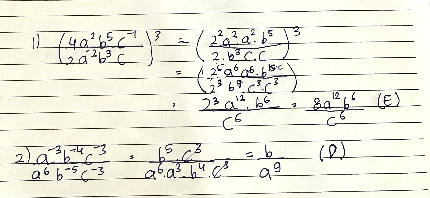 1) (4a²b⁵c⁻¹ / 2a⁻²b³c)³ = (2²a²a²·b⁵ / 2·b³c·c)³
= (2⁶a⁶a⁶·b¹⁵ / 2³b⁹c³c³)
= 2³a¹²·b⁶ / c⁶ = 8a¹²b⁶ / c⁶ (E)
2) a⁻³b⁻⁴c⁻³ / a⁶b⁻⁵c⁻³ = b⁵·c³ / a⁶·a³·b⁴·c³ = b / a⁹ (D)